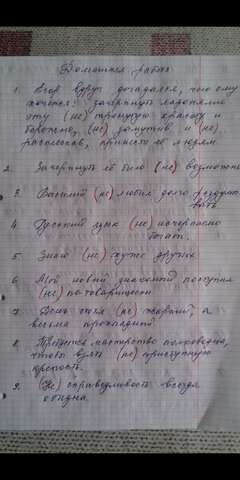 Домашняя работа
1. Егор вдруг догадался, что ему
хочется: зачерпнуть ладонями
эту (не) тронутую красоту и
бережно, (не) замутив и (не)
расплескав, принести её людям.
2. Зачерпнуть её было (не) возможно
3. Василий (не) любил долго раздумы
вать
4. Русский язык (не) исчерпаемо
богат.
5. Знаю (не) хуже других
6. Мой новый знакомый поступил
(не) по товарищески.
7. День стоял (не) жаркий, а
весьма прохладный.
8. Требуется мастерство полководца,
чтобы взять (не) приступную
крепость.
9. (Не) справедливость всегда
обидна.